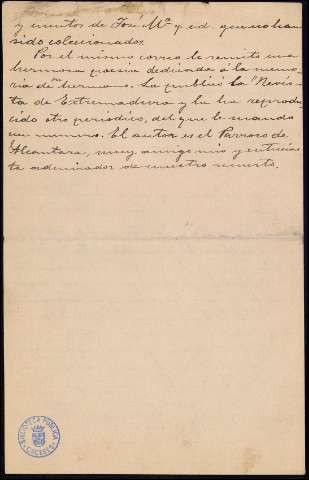 y cuentos de José Mª y ed. que no han
sido coleccionados.
Por el mismo correo le remito una
hermosa poesía dedicada á la memo-
ria de su hermano. La publicó la "Revis-
ta de Extremadura y la ha reprodu-
cido otro periodico, del que le mando
un número. El autor es el Párroco de
Alcantara, muy amigo mio y entusias-
ta admirador de nuestro muerto.
BIBLIOTECA PUBLICA
CACERES